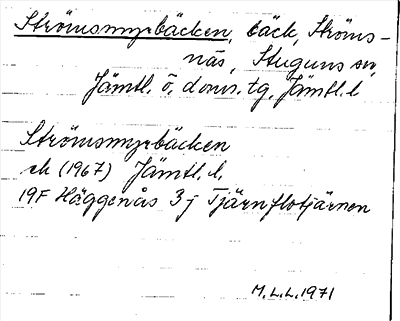 Strömsmyrbäcken, bäck, Ströms-
näs, Stuguns sn,
Jämtl. ö. doms. tg, Jämtl. l
Strömsmyrbäcken
ek (1967) Jämtl. l,
19F Häggenås 3 j Tjärnflotjärnen
M.L.L. 1971